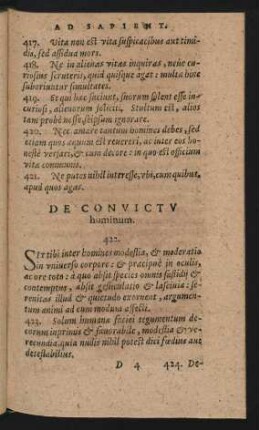 AD SAPIENT.
417. Vita non est vita suspicacibus aut timi-
dis, sed assidua mors.
418. Ne in alienas vitas inquiras, neue cu-
riosius scruteris, quid quisque agat: multa hinc
suboriuntur simultates.
419. Et qui hæc faciunt, suorum solent esse in-
curiosi, alienorum soliciti. Stultum est, alios
tam probè nosse, seipsum ignorare.
420. Nec amare tantum homines debes, sed
etiam quos æquum est reuereri, ac inter eos ho-
nestè versari, & cum decore: in quo est officium
vitæ communis.
421. Ne putes nihil interesse, vbi, cum quibus,
apud quos agas.
DE CONVICTV
hominum.
422.
SIt tibi inter homines modestia, & moderatio
in vniuerso corpore: & præcipuè in oculis,
ac ore toto: à quo absit species omnis fastidij &
contemptus, absit gesticulatio & lasciuia: se-
renitas illud & quietudo exornent, argumen-
tum animi ad eum modum affecti.
423. Solum humanæ faciei tegumentum de-
corum inprimis & fauorabile, modestia & ve-
recundia. quia nudis nihil potest dici fœdius aut
detestabilius.
D 4 424. De-